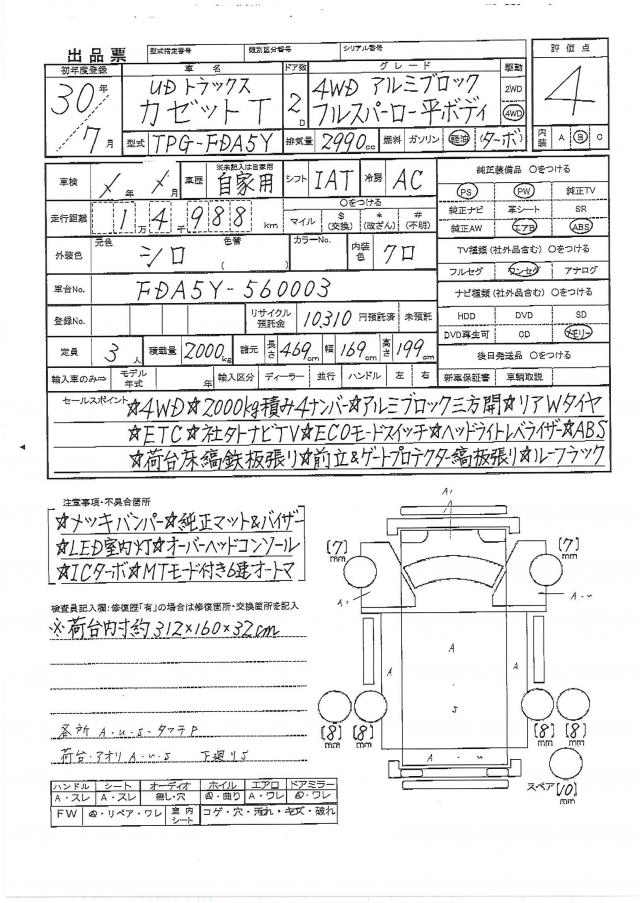 出品票 型式指定番号 類別区分番号 シリアル番号
初年度登録 車名 ドア数 グレード 駆動 評価点
30年 UDトラックス 4WD アルミブロック 2WD 4
7月 カゼットT 2D フルスーパーロー平ボディ 4WD
型式 TPG-FDA5Y 排気量 2990cc 燃料 ガソリン 軽油 (ターボ) 内装 A B C
車検 ×年 ×月 車歴 ※未記入は自家用 自家用 シフト IAT 冷房 AC
純正装備品 ○をつける
PS PW 純正TV
純正ナビ 革シート SR
純正AW エアB ABS
走行距離 1万4千988km ○をつける マイル $(交換) *(改ざん) #(不明)
外装色 元色 シロ 色替 ( ) カラーNo. 内装色 クロ
TV種類 (社外品含む) ○をつける
フルセグ ワンセグ アナログ
車台No. FDA5Y-560003
ナビ種類 (社外品含む) ○をつける
登録No. リサイクル預託金 10,310 円預託済 未預託
HDD DVD SD
DVD再生可 CD メモリー
定員 3人 積載量 2000kg 諸元 長さ 469cm 幅 169cm 高さ 199cm
後日発送品 ○をつける
輸入車のみ⇒ モデル年式 年 輸入区分 ディーラー 並行 ハンドル 左 右 新車保証書 車輌取説
セールスポイント ☆4WD☆2000kg積み4ナンバー☆アルミブロック三方開☆リアWタイヤ
☆ETC☆社外ナビTV☆ECOモードスイッチ☆ヘッドライトレベライザー☆ABS
☆荷台床縞鉄板張り☆前立&ゲートプロテクター縞板張り☆ルーフラック
注意事項・不具合箇所
☆メッキバンパー☆純正マット&バイザー
☆LED室内灯☆オーバーヘッドコンソール
☆ICターボ☆MTモード付き6速オートマ
検査員記入欄:修復歴「有」の場合は修復箇所・交換箇所を記入
※荷台内寸約312×160×32cm
各所 A・U・S・タッチP
荷台・アオリ A・U・S 下廻りS
A1
[7]mm [7]mm
A1 A・U
A
S
[8]mm [8]mm [8]mm [8]mm
A・U
スペア [10]mm
ハンドル シート オーディオ ホイル エアロ ドアミラー
A・スレ A・スレ 無し・穴 A・曲り A・ワレ A・ワレ
FW A・リペア・ワレ 室内シート コゲ・穴・汚れ・キズ・破れ